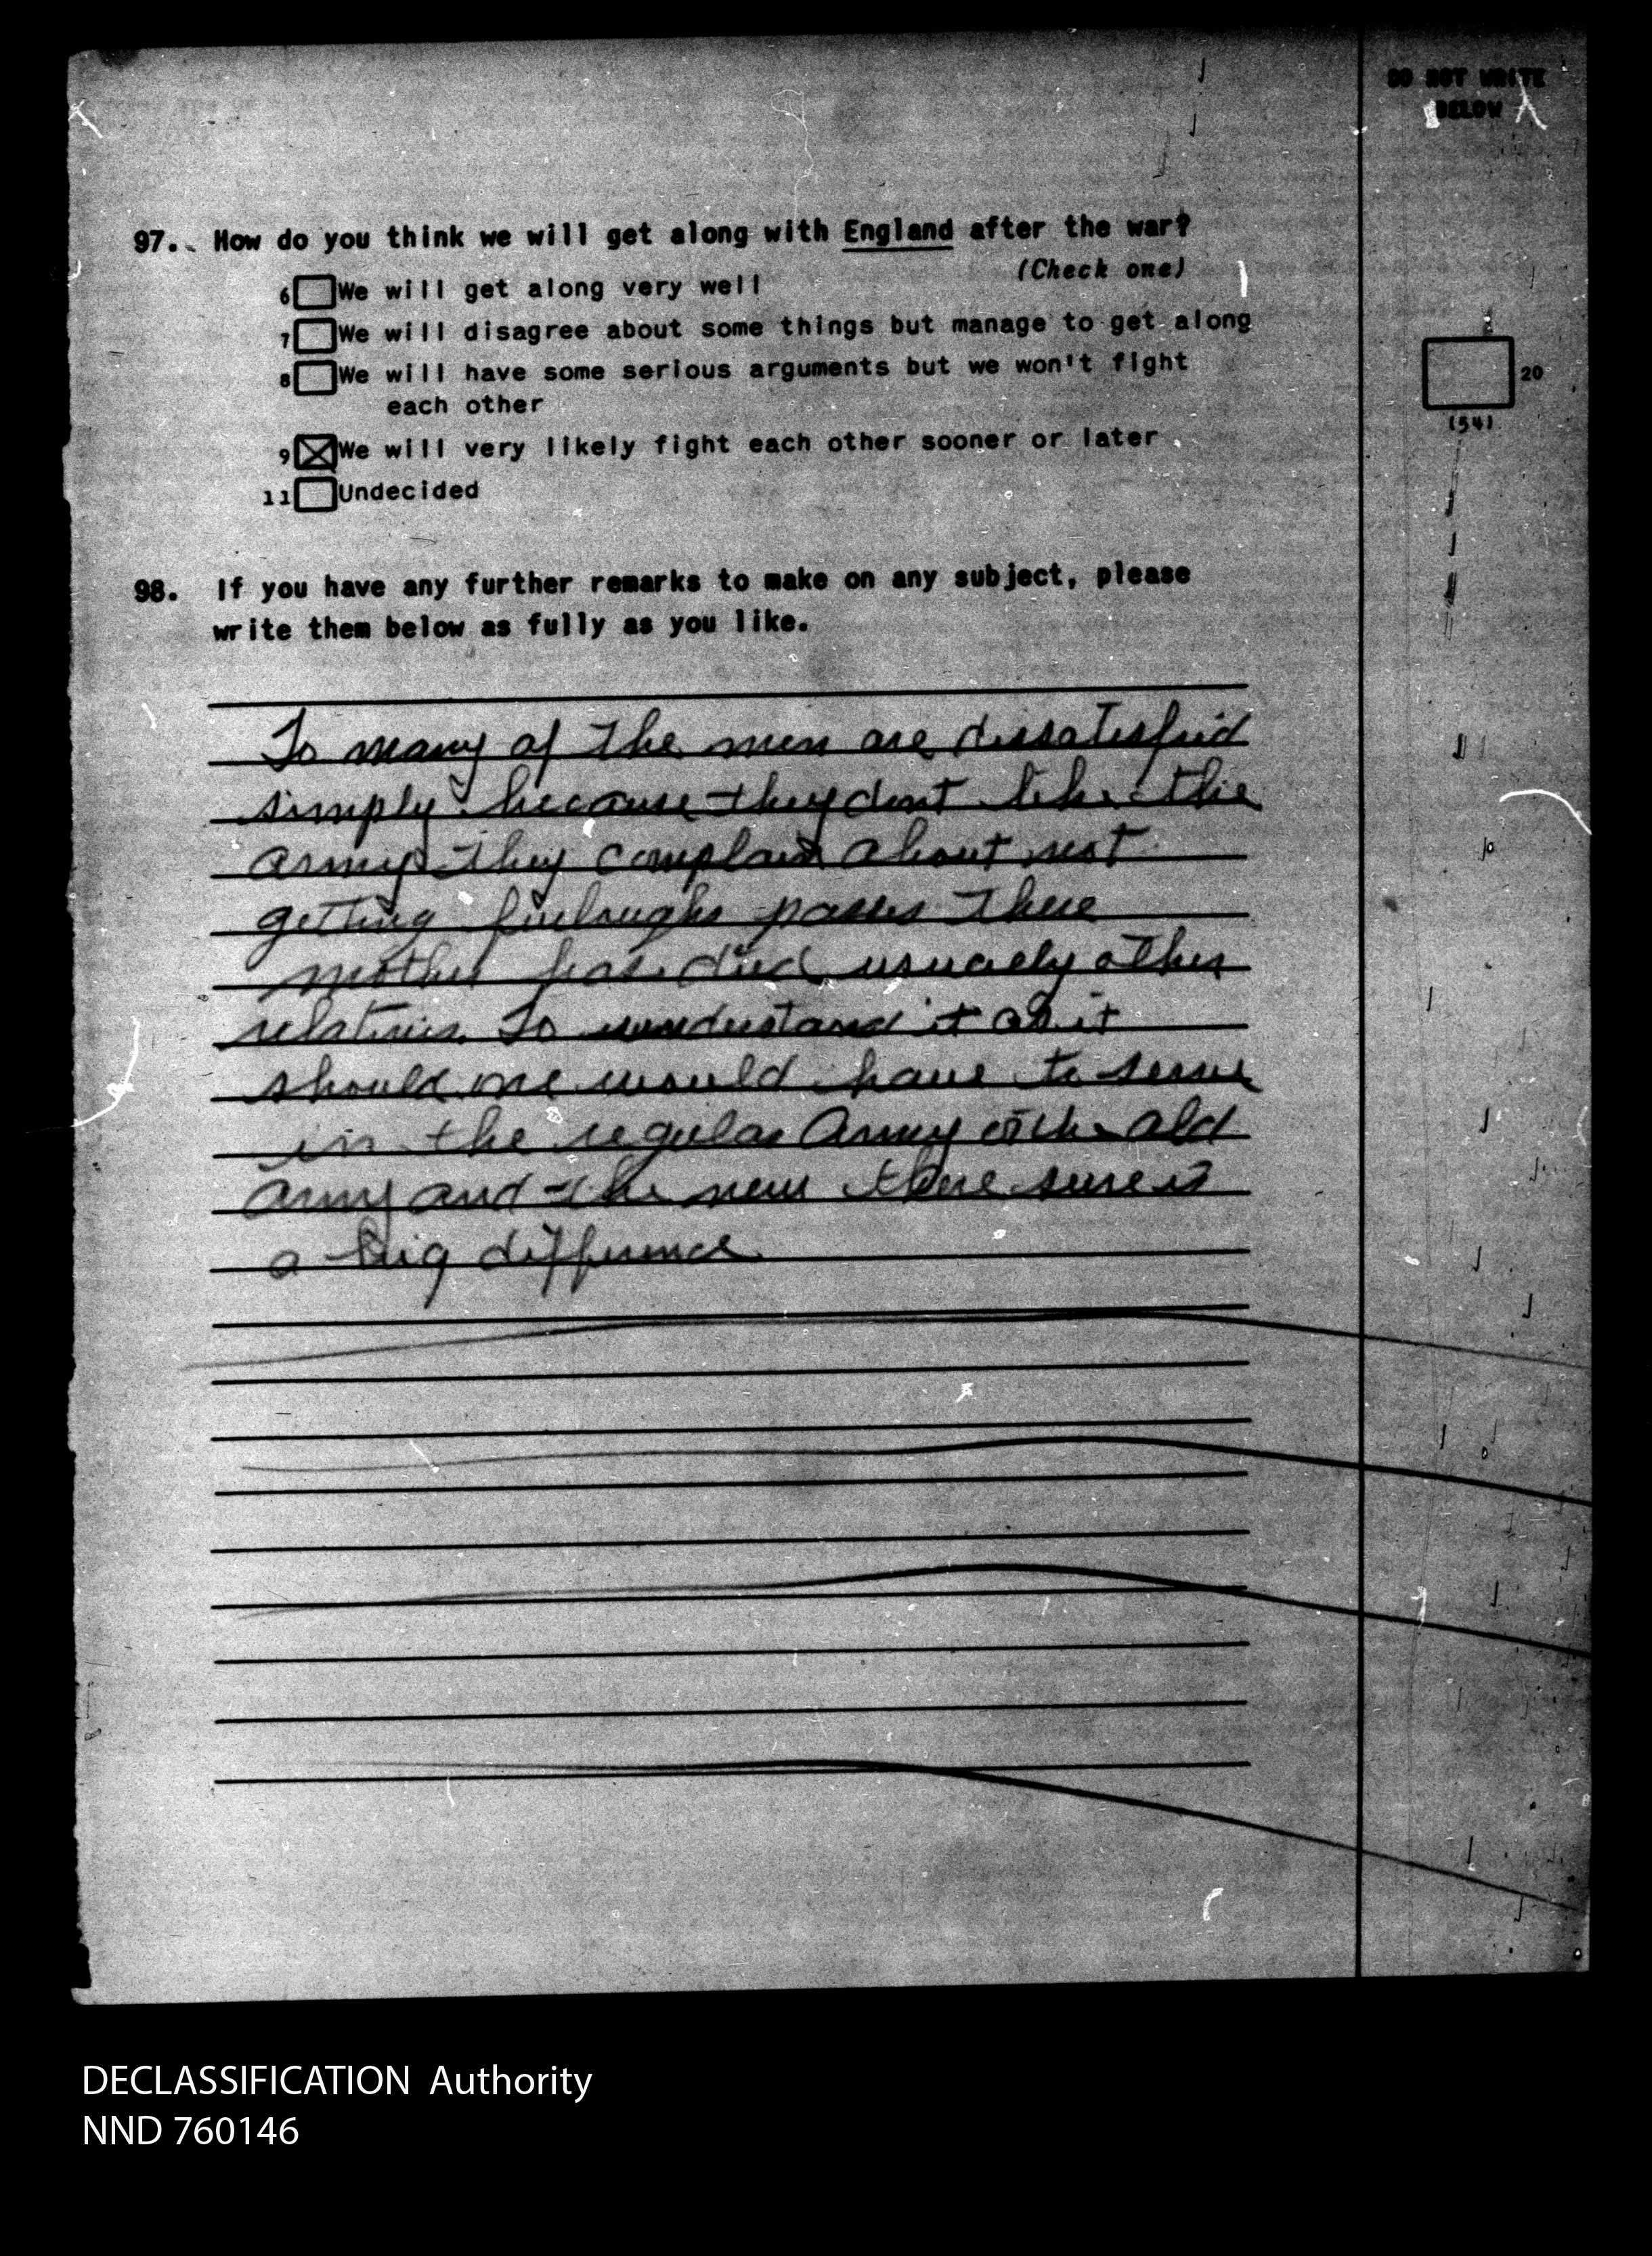 DO NOT WRITE
BELOW
97. How do you think we will get along with England after the war?
(Check one)
6 We will get along very well
7 We will disagree about some things but manage to get along
8 We will have some serious arguments but we won't fight
each other
20
(54)
9 We will very likely fight each other sooner or later
11 Undecided
98. If you have any further remarks to make on any subject, please
write them below as fully as you like.
To many of the men are dissatisfied
simply because they dont like the
army they complain about not
getting furloughs passes there
mother has died usually other
relatives. To understand it as it
should one would have to serve
in the regular Army or the old
army and the new there sure is
a big difference.
DECLASSIFICATION Authority
NND 760146